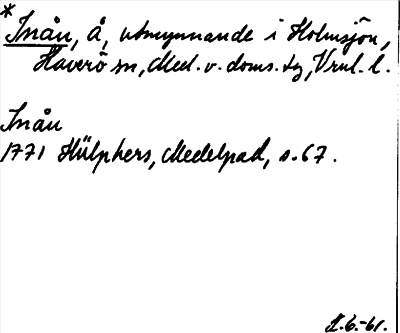 * Inån, å, utmynnande i Holmsjön,
Haverö sn, Med. v. doms. tg, Vrnl. l.
Inån
1771 Hülphers, Medelpad, s. 67.
2.6.-61.